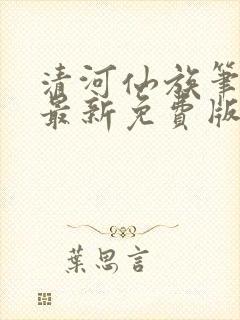 清河仙族筆
最新免費版
葉思言